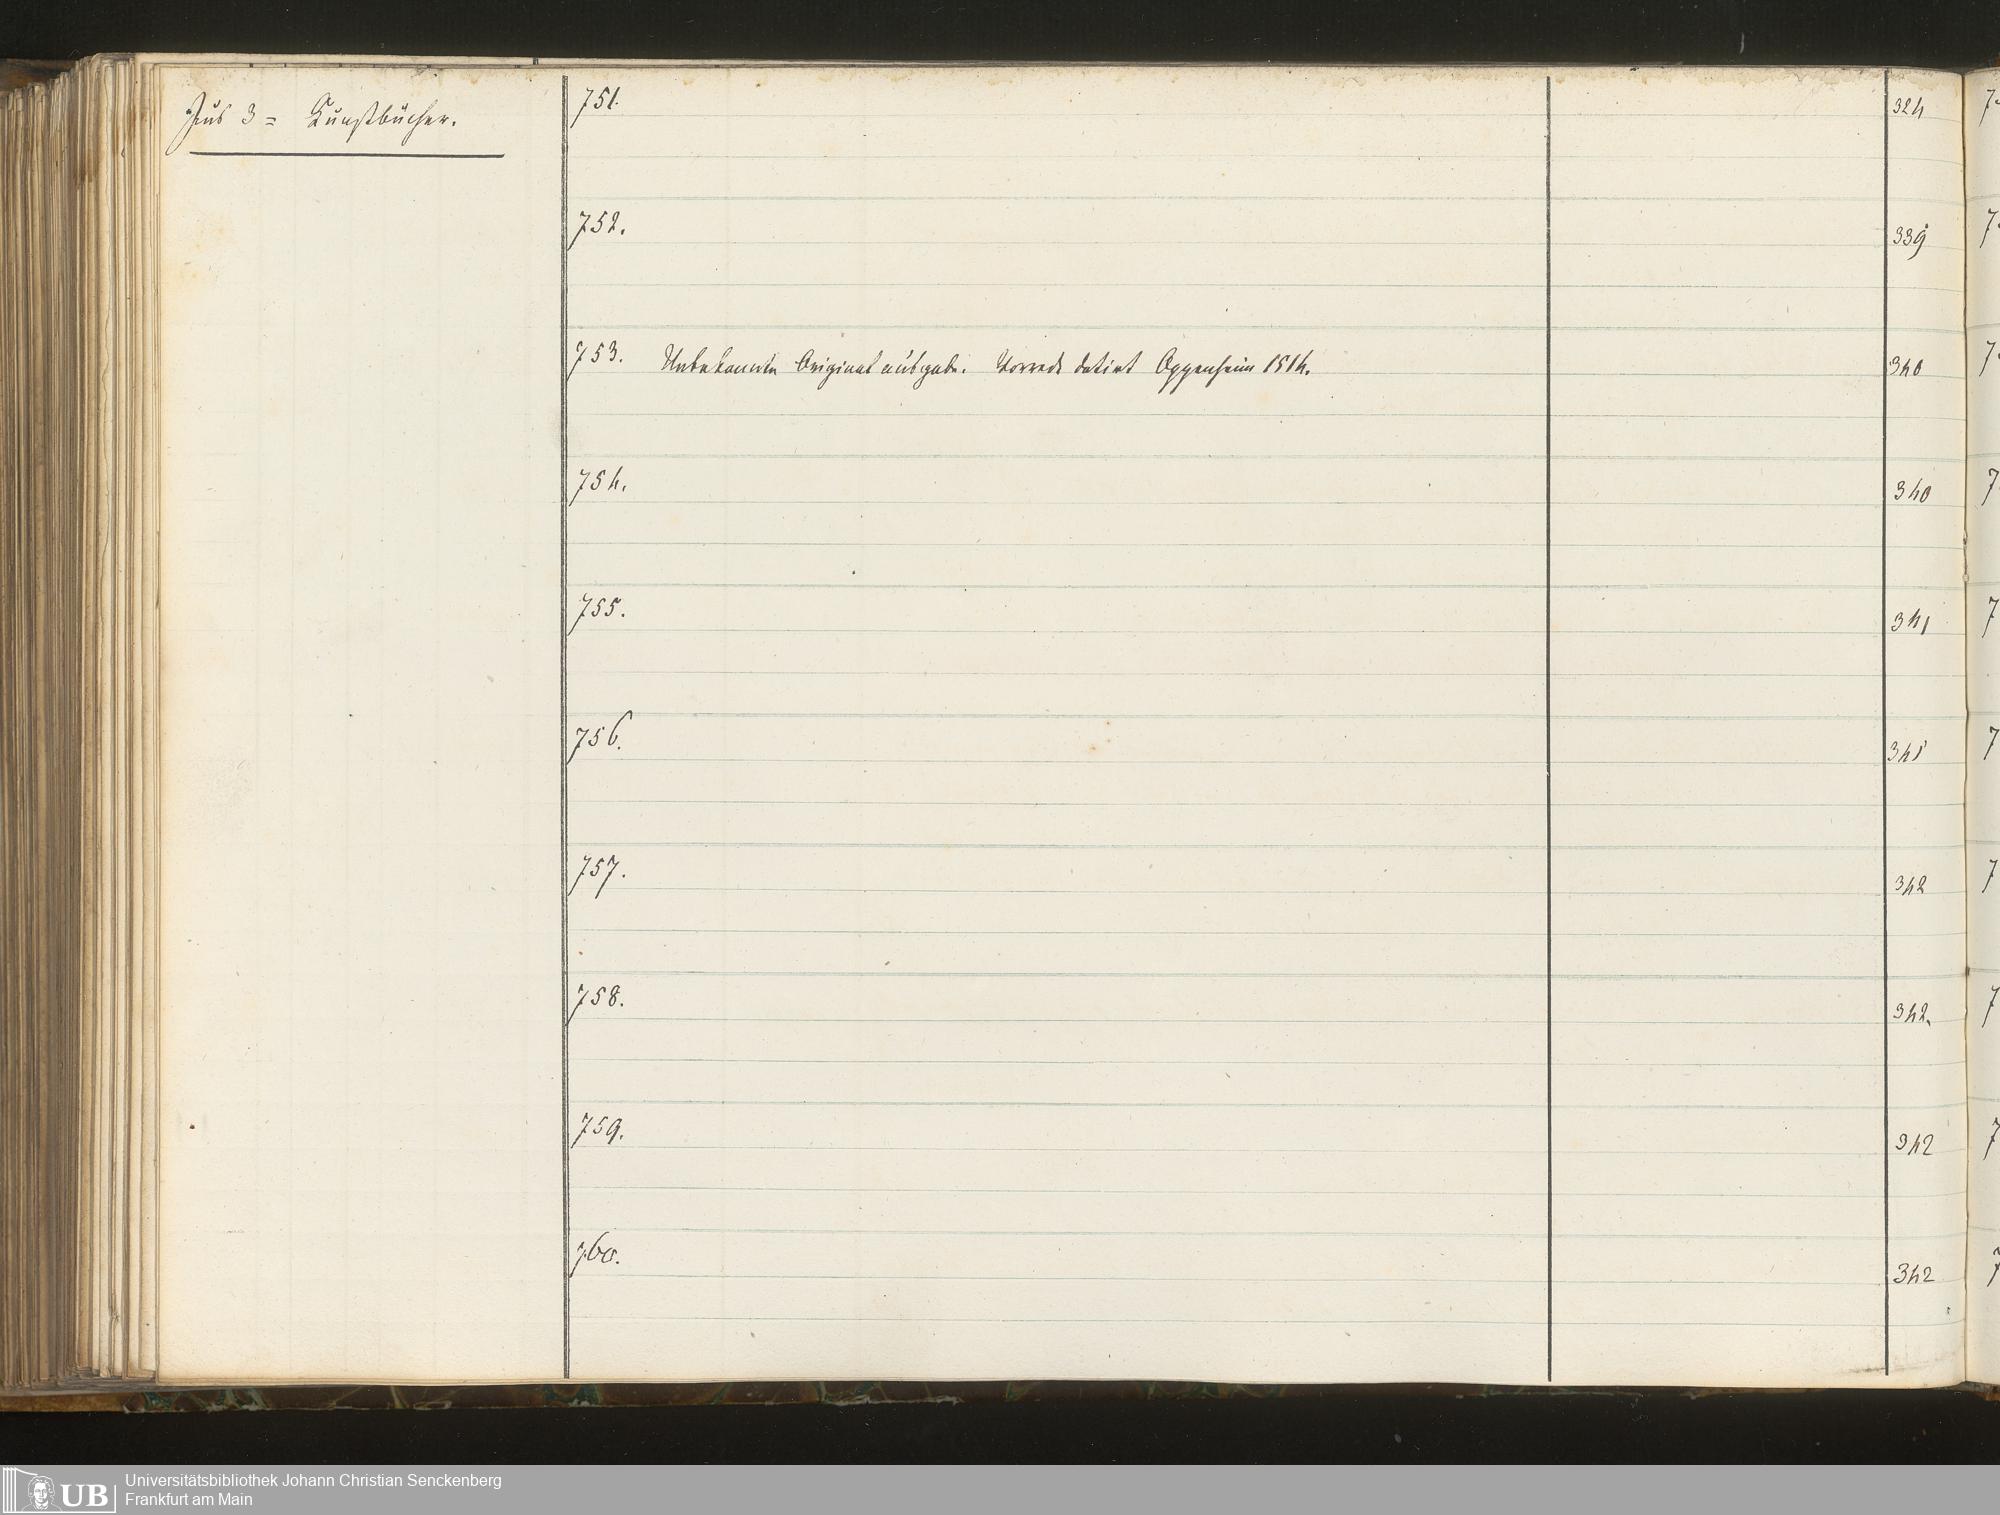 Jus 3 = Kunstbücher.
751. 324
752. 339
753. Unbekannte Originalausgabe. Vorrede datirt Oppenheim 1514. 340
754. 340
755. 341
756. 341
757. 342
758. 342.
759. 342
760. 342
UB Universitätsbibliothek Johann Christian Senckenberg
Frankfurt am Main